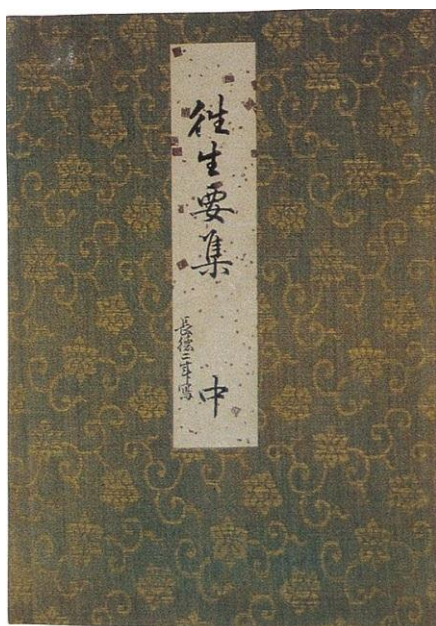 往生要集 中
長徳二年写